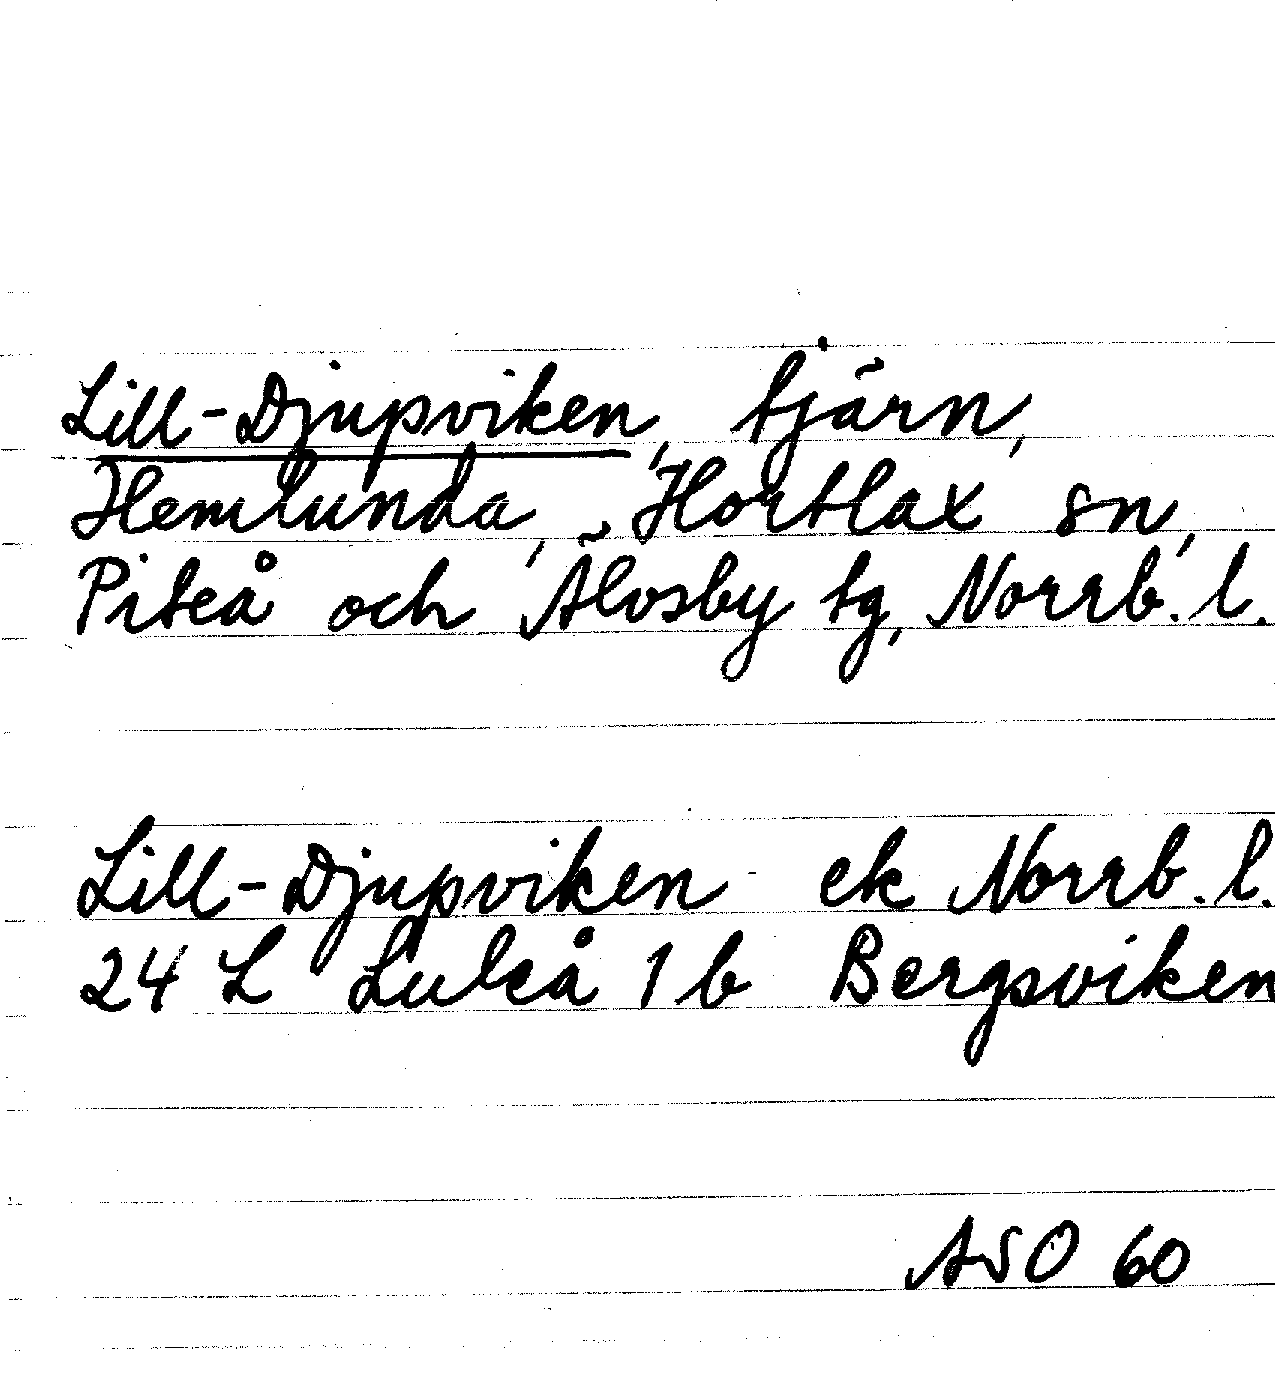 Lill-Djupviken, tjärn,
Hemlunda, Hortlax sn,
Piteå och Älvsby tg, Norrb. l.
Lill-Djupviken ek Norrb. l.
24 L Luleå 1 b Bergsviken
ASO 60